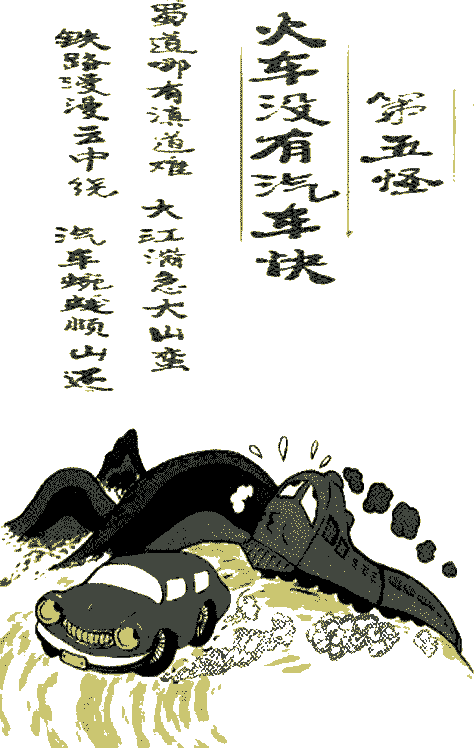 第五怪
火车没有汽车快
蜀道哪有滇道难 大江满急大山蛮
铁路漫漫云中绕 汽车蜿蜒顺山还